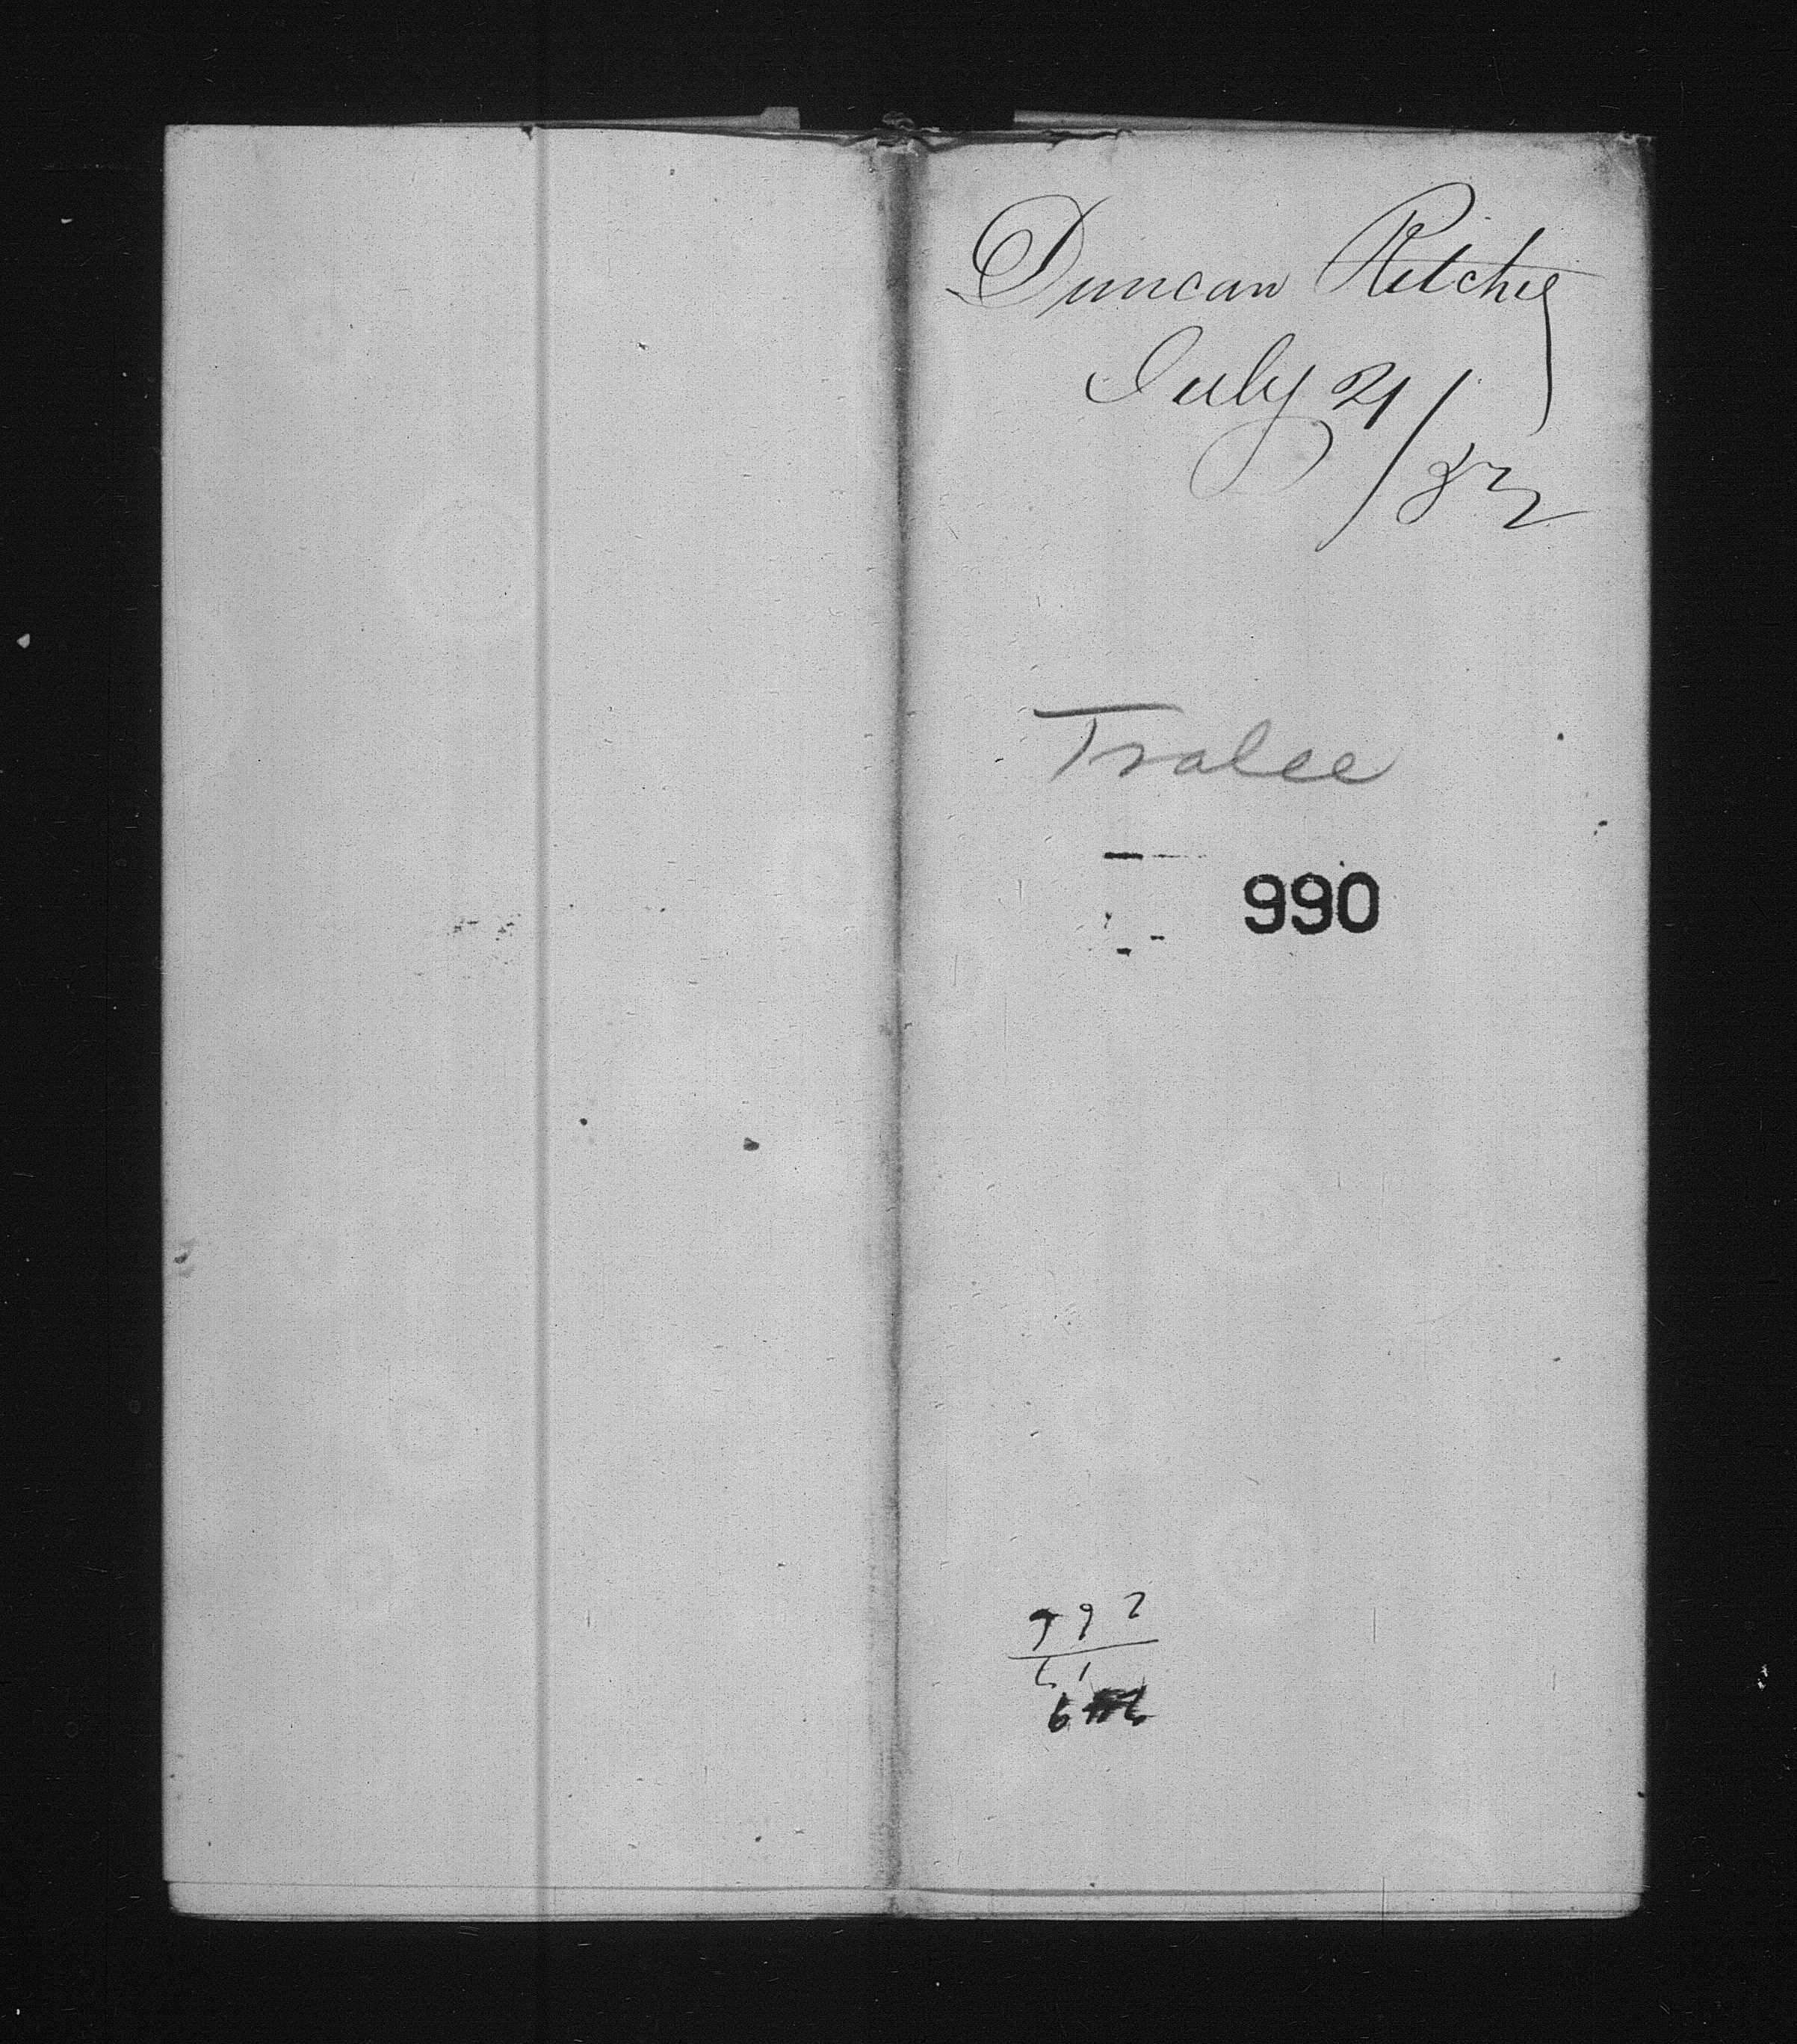 Duncan Ritchie
July 21/82
Tralee
990
992
61
6